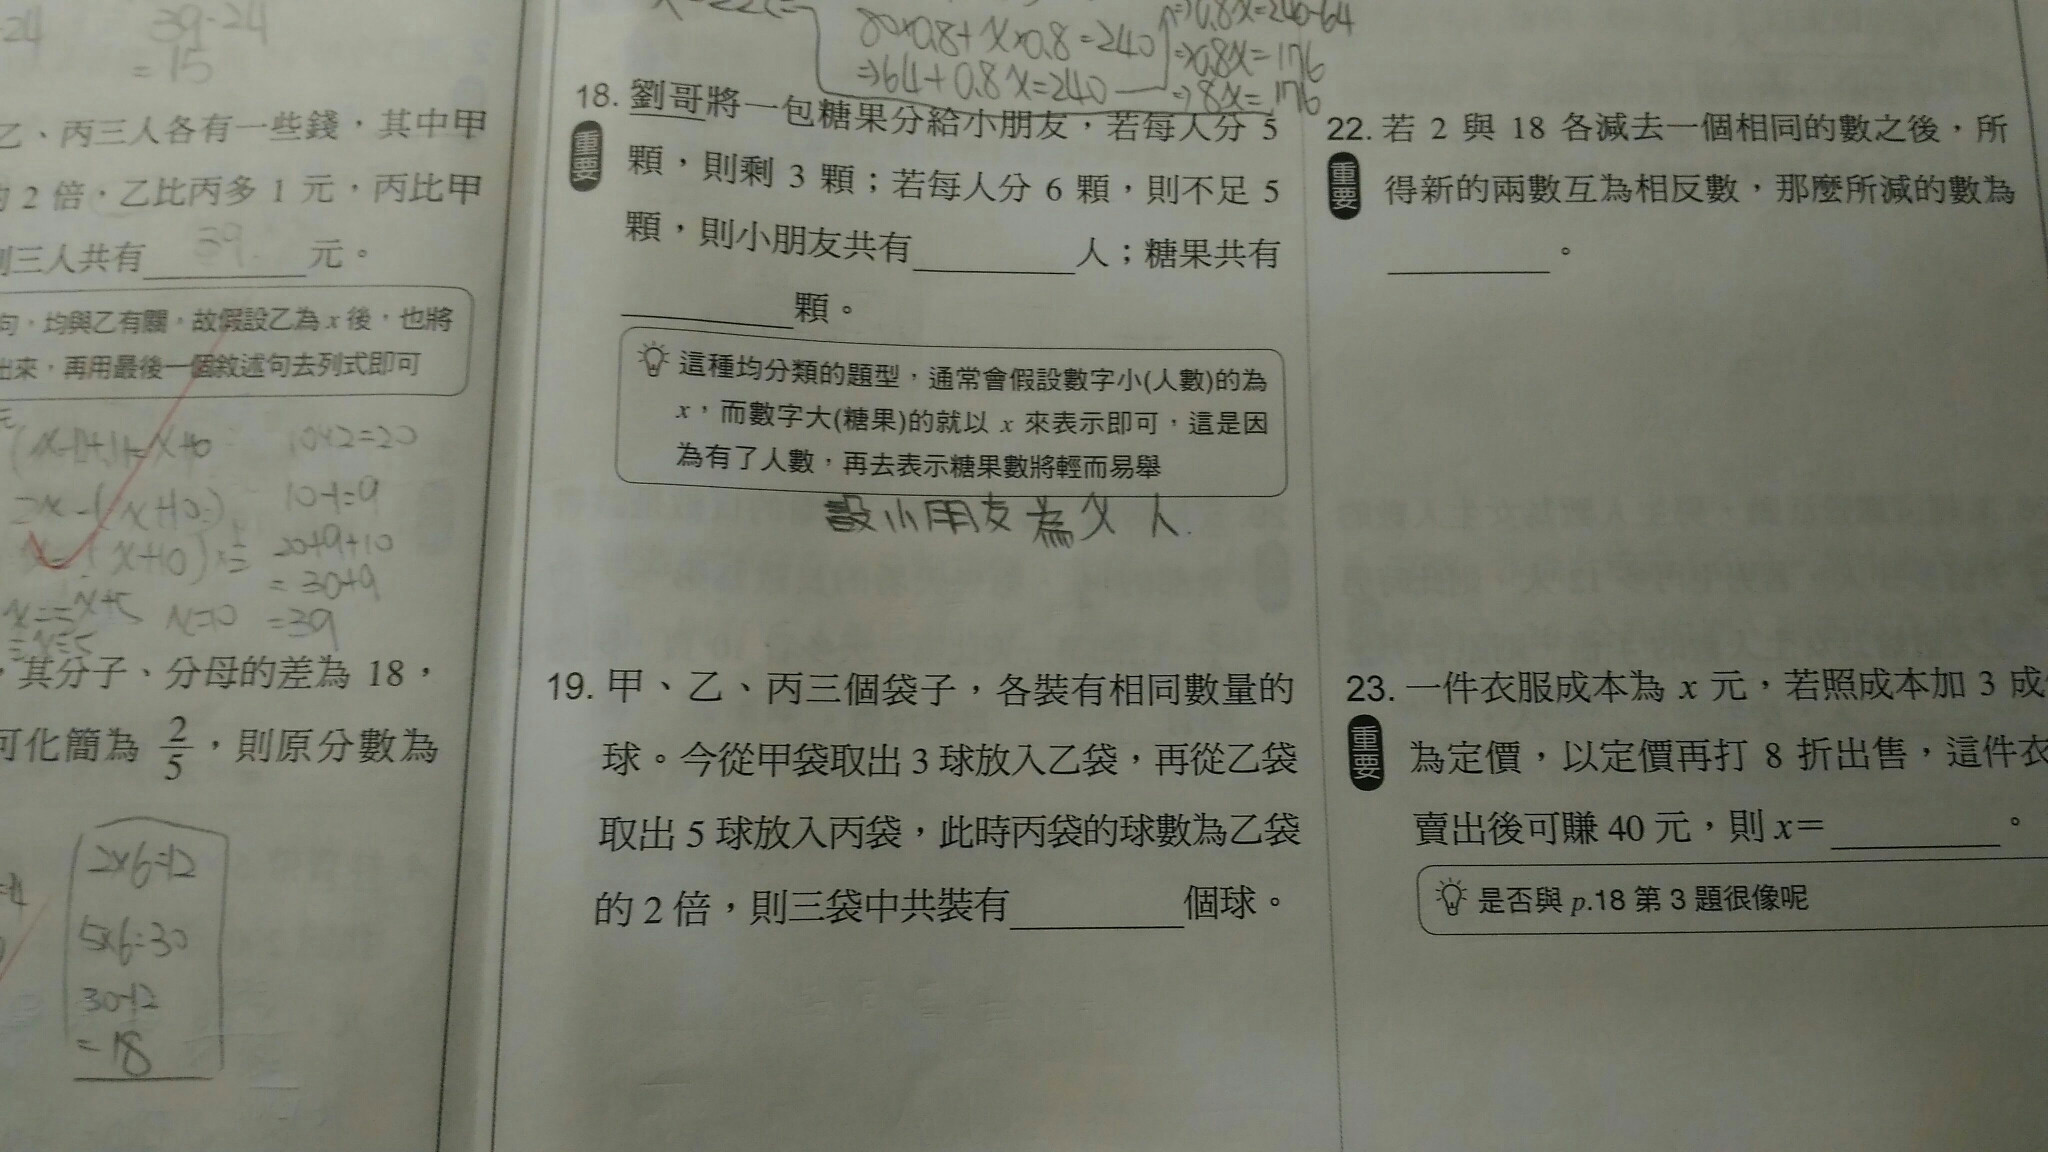 -24
39-24
=15
乙、丙三人各有一些錢，其中甲
2 倍，乙比丙多 1 元，丙比甲
三人共有 39 元。
句，均與乙有關，故假設乙為 x 後，也將
出來，再用最後一個敘述句去列式即可
10×2=20
10-1=9
20+9+10
=30+9
=39
(x+10)
x+5
x=10
，其分子、分母的差為 18，
可化簡為 2/5，則原分數為
2×6=12
5×6=30
30-12
=18
80×0.8+x×0.8=240
⇒64+0.8x=240
⇒0.8x=240-64
⇒0.8x=176
⇒8x=176
18. 劉哥將一包糖果分給小朋友，若每人分 5
重要
顆，則剩 3 顆；若每人分 6 顆，則不足 5
顆，則小朋友共有________人；糖果共有
________顆。
這種均分類的題型，通常會假設數字小(人數)的為
x，而數字大(糖果)的就以 x 來表示即可，這是因
為有了人數，再去表示糖果數將輕而易舉
設小朋友為 x 人.
19. 甲、乙、丙三個袋子，各裝有相同數量的
球。今從甲袋取出 3 球放入乙袋，再從乙袋
取出 5 球放入丙袋，此時丙袋的球數為乙袋
的 2 倍，則三袋中共裝有________個球。
22. 若 2 與 18 各減去一個相同的數之後，所
重要
得新的兩數互為相反數，那麼所減的數為
________。
23. 一件衣服成本為 x 元，若照成本加 3 成
重要
為定價，以定價再打 8 折出售，這件衣
賣出後可賺 40 元，則 x=________。
是否與 p.18 第 3 題很像呢